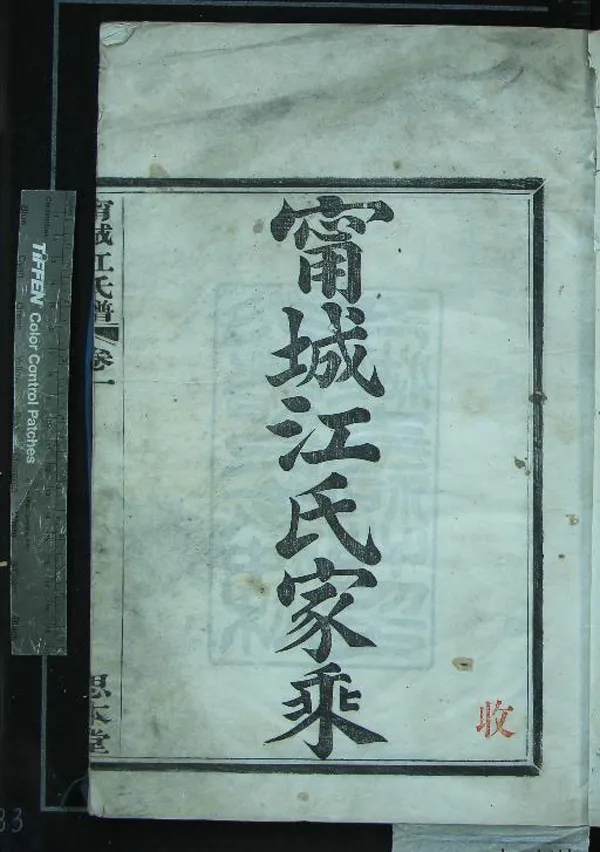 甯城江氏家乘
收
甯城江氏譜
卷一
思本堂
TIFFEN Color Control Patches